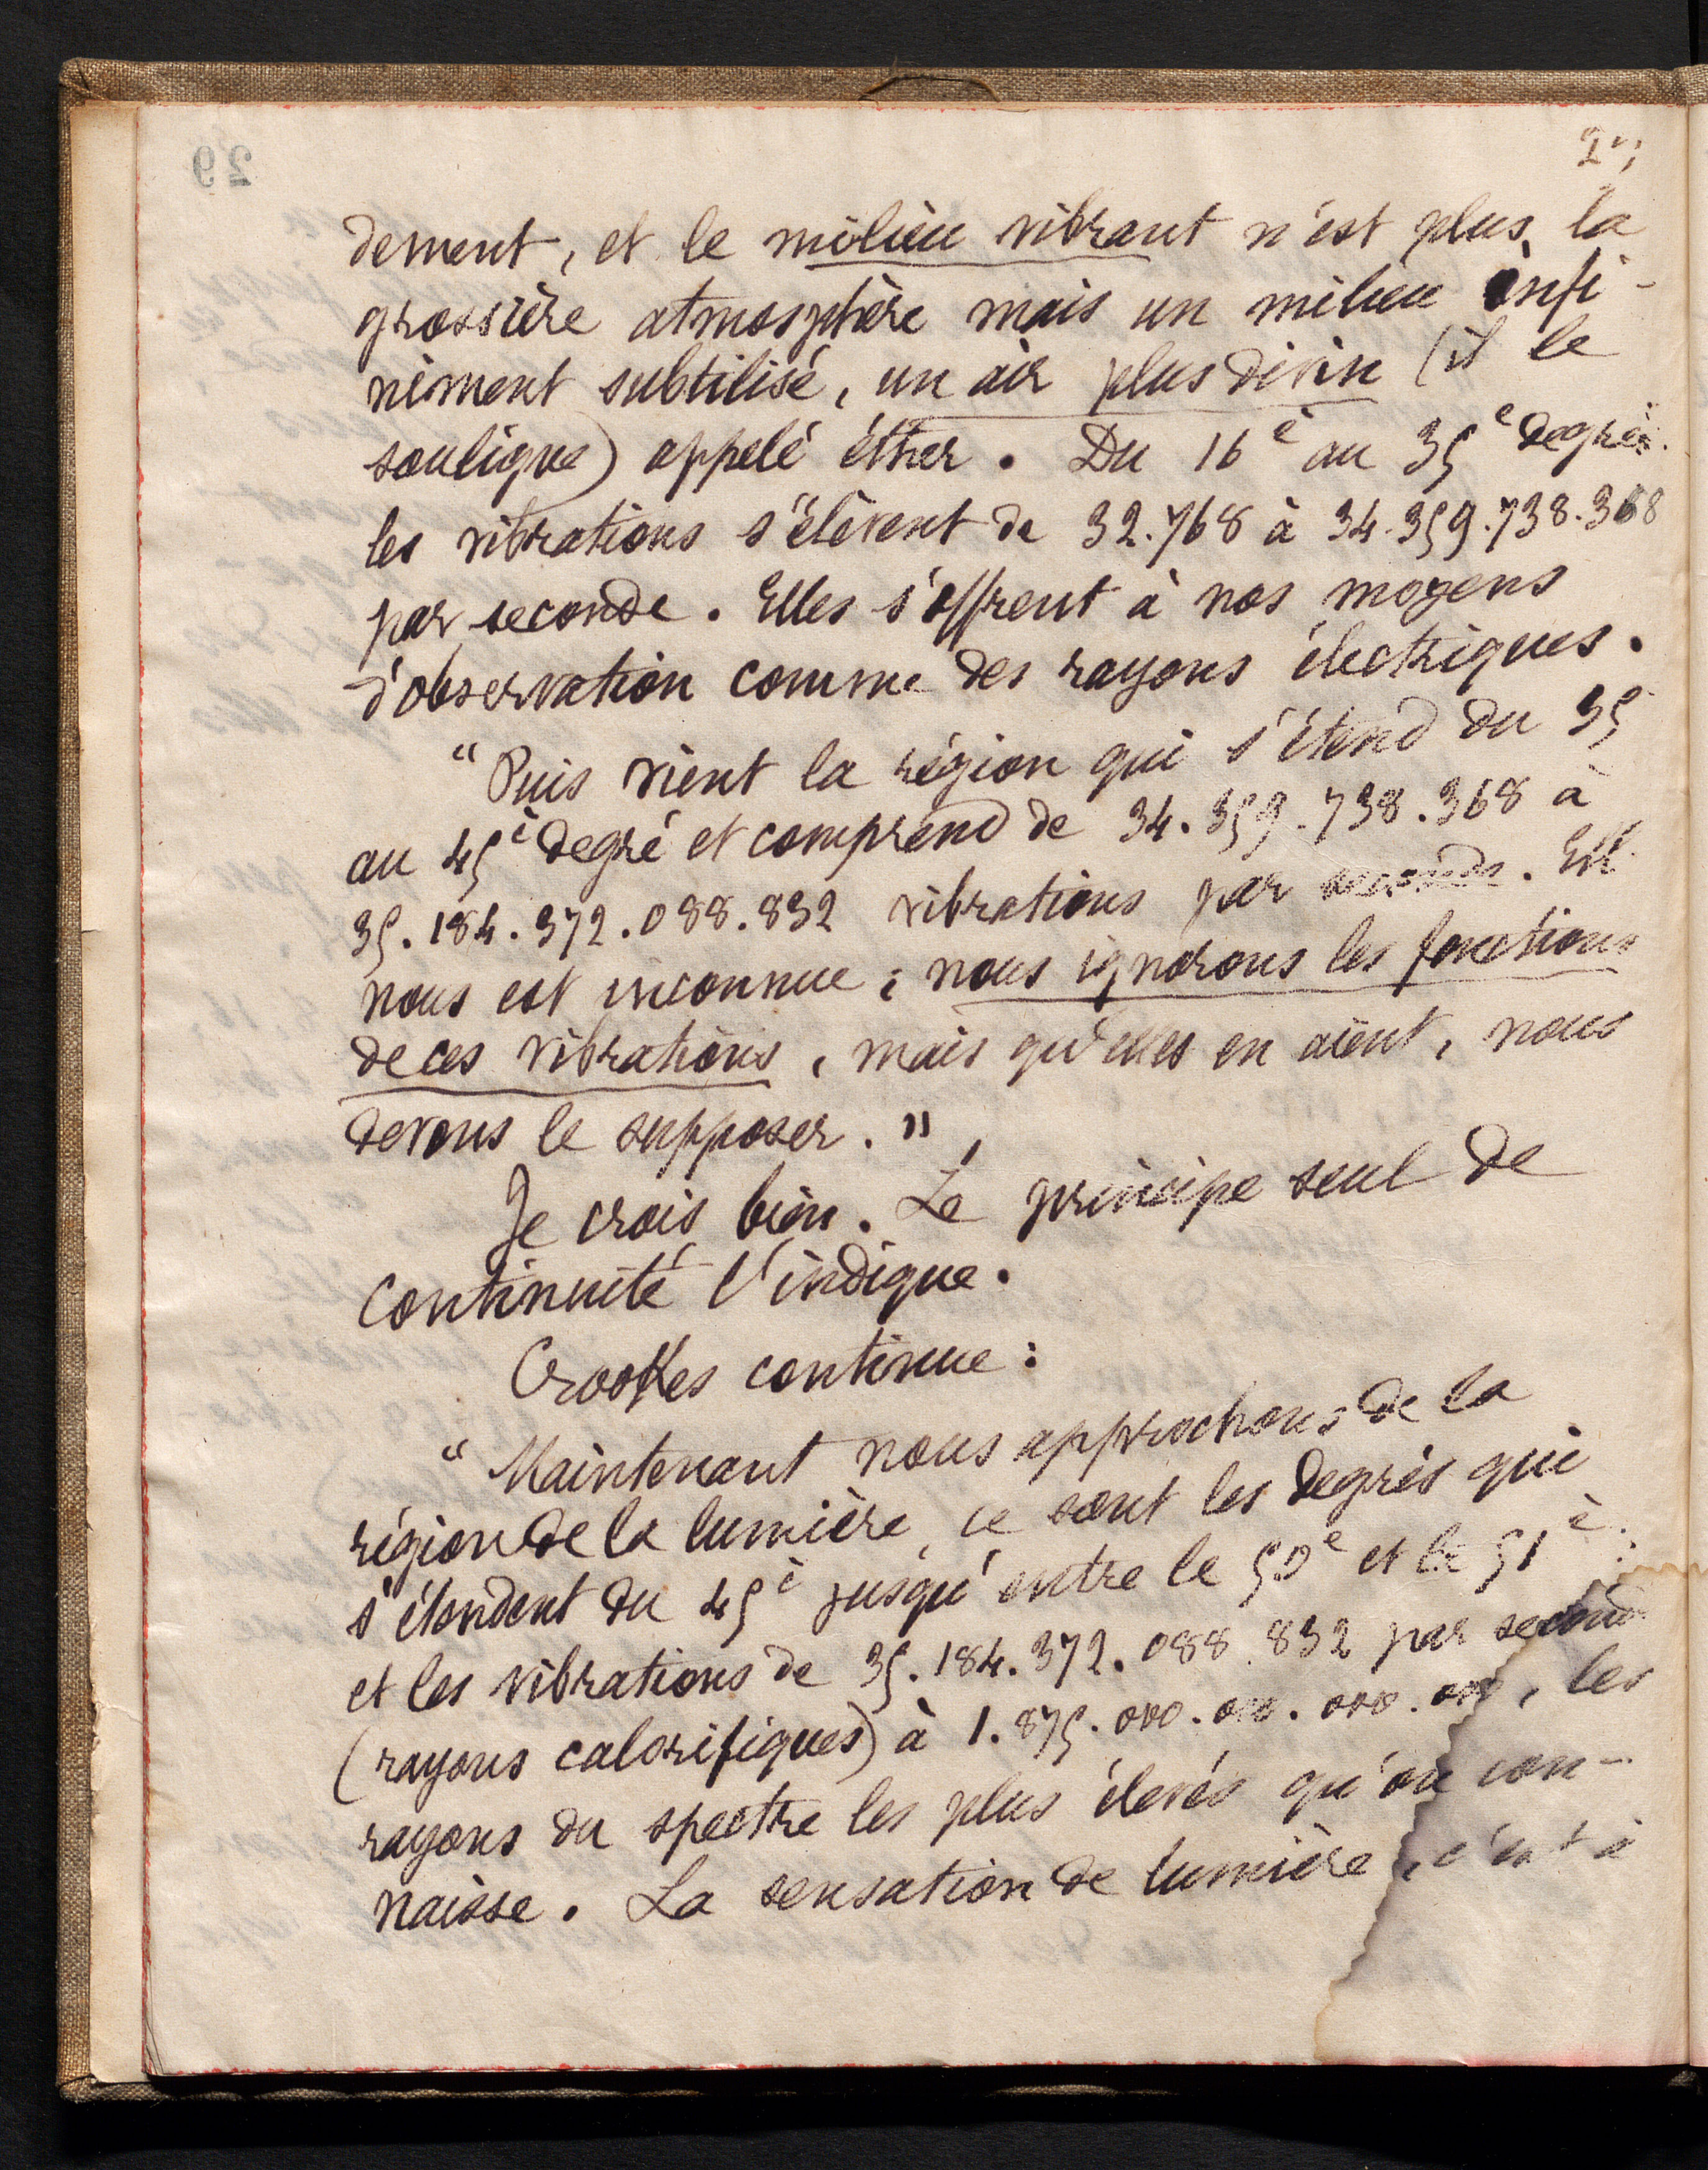 dement, et le milieu vibrant n'est plus la
grossière atmosphère mais un milieu infi-
niment subtilisé, un air plus divin (il le
souligne) appelé éther. Du 16e au 35e degrés
les vibrations s'élèvent de 32.768 à 34.359.738.368
par seconde. Elles s'offrent à nos moyens
d'observation comme des rayons électriques.
"Puis vient la région qui s'étend du 35
au 45e degré et comprend de 34.359.738.368 à
35.184.372.088.832 vibrations par seconde. Ell
nous est inconnue; nous ignorons les fonctions
de ces vibrations, mais qu'elles en aient, nous
devons le supposer."
Je crois bien. Le principe seul de
continuité l'indique.
Crookes continue:
"Maintenant nous approchons de la
région de la lumière, ce sont les degrés qui
s'étendent du 45e jusqu'entre le 50e et le 51e
et les vibrations de 35.184.372.088.832 par second
(rayons calorifiques) à 1.875.000.000.000.000, les
rayons du spectre les plus élevés qu'on con-
naisse. La sensation de lumière, c'est à